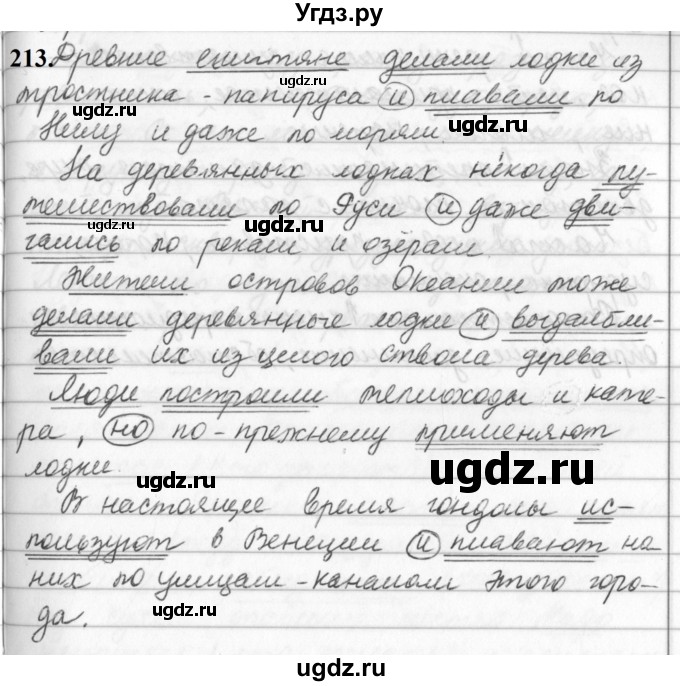 Угдз.ру
213. Древние египтяне делали лодки из
ugdz.ru ugdz.ru
тростника - папируса и плавали по
ugdz.ru
Нилу и даже по морям.
На деревянных лодках некогда пу-
тешествовали по Руси и даже дви-
ugdz.ru
гались по рекам и озёрам.
ugdz.ru
Жители островов Океании тоже
делали деревянные лодки и выдалбли-
вали их из целого ствола дерева.
ugdz.ru
Люди построили теплоходы и кате-
ра, но по-прежнему применяют
лодки.
ugdz.ru
ugdz.ru
В настоящее время гондолы ис-
пользуют в Венеции и плавают на
них по улицам - каналам этого горо-
ugdz.ru
да.
ugdz.ru
ugdz.ru